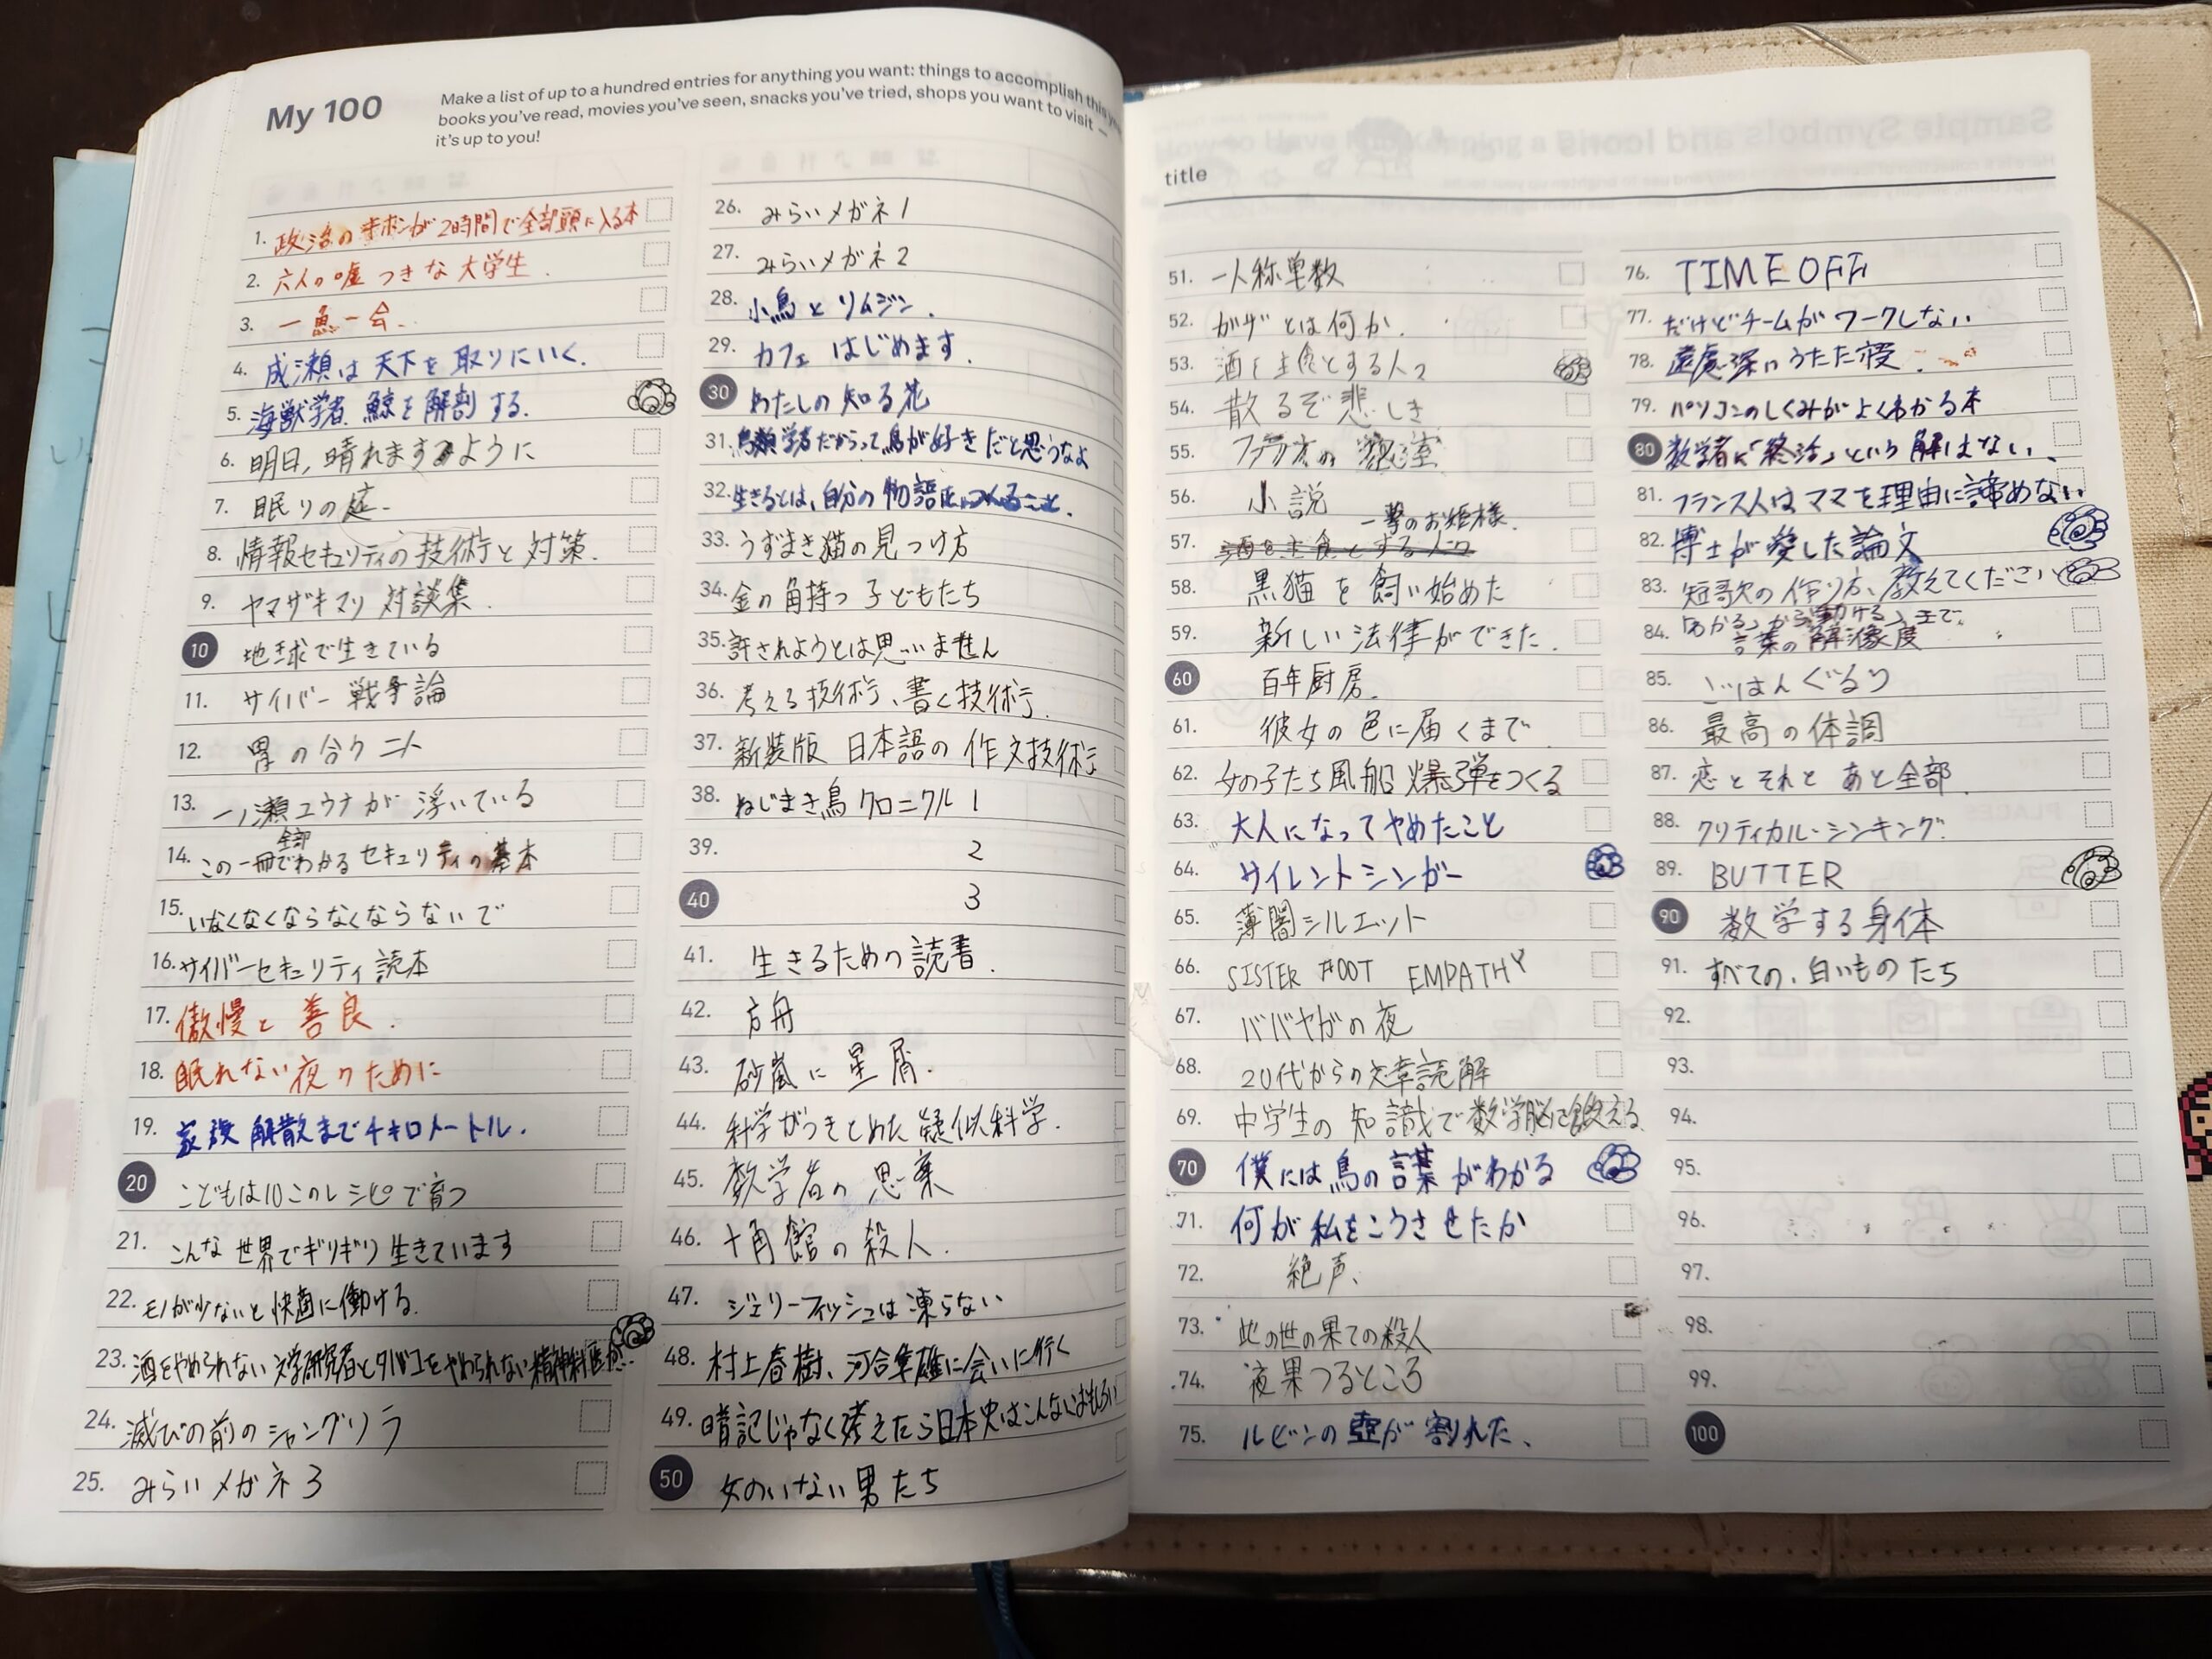 My 100
Make a list of up to a hundred entries for anything you want: things to accomplish this
books you've read, movies you've seen, snacks you've tried, shops you want to visit —
it's up to you!
1. 政治のキホンが2時間で全部頭に入る本
2. 六人の嘘つきな大学生.
3. 一魚一会.
4. 成瀬は天下を取りにいく.
5. 海獣学者、鯨を解剖する.
6. 明日、晴れますように
7. 眠りの庭.
8. 情報セキュリティの技術と対策.
9. ヤマザキマリ対談集.
10 地球で生きている
11. サイバー戦争論
12. 胃の合う二人
13. 一ノ瀬ユウナが浮いている
14. この一冊で全部わかるセキュリティの基本
15. いなくなくならなくならないで
16. サイバーセキュリティ読本
17. 傲慢と善良.
18. 眠れない夜のために
19. 家族解散まで千キロメートル.
20 こどもは10このレシピで育つ
21. こんな世界でギリギリ生きています
22. モノが少ないと快適に働ける.
23. 酒をやめられない文学研究者とタバコをやめられない精神科医が…
24. 滅びの前のシャングリラ
25. みらいメガネ3
26. みらいメガネ1
27. みらいメガネ2
28. 小鳥とリムジン.
29. カフェはじめます.
30 わたしの知る花
31. 鳥類学者だからって、鳥が好きだと思うなよ
32. 生きるとは、自分の物語をつくること.
33. うずまき猫の見つけ方
34. 金の角持つ子どもたち
35. 許されようとは思いません
36. 考える技術、書く技術.
37. 新装版 日本語の作文技術
38. ねじまき鳥クロニクル1
39. 2
40 3
41. 生きるための読書.
42. 方舟
43. 砂嵐に星屑.
44. 科学がつきとめた疑似科学.
45. 数学者の思案
46. 十角館の殺人.
47. ジェリーフィッシュは凍らない
48. 村上春樹、河合隼雄に会いに行く
49. 暗記じゃなく考えたら日本史はこんなにおもしろい
50 女のいない男たち
title
51. 一人称単数
52. ガザとは何か.
53. 酒を主食とする人々
54. 散るぞ悲しき
55. ファラオの密室
56. 小説
57. 酒を主食とする人々 一撃のお姫様.
58. 黒猫を飼い始めた
59. 新しい法律ができた.
60 百年厨房.
61. 彼女の色に届くまで
62. 女の子たち風船爆弾をつくる
63. 大人になってやめたこと
64. サイレントシンガー
65. 薄闇シルエット
66. SISTER FOOT EMPATHY
67. ババヤガの夜
68. 20代からの文章読解
69. 中学生の知識で数学脳に鍛える
70 僕には鳥の言葉がわかる
71. 何が私をこうさせたか
72. 絶声、
73. 此の世の果ての殺人
74. 夜果つるところ
75. ルビンの壺が割れた、
76. TIME OFF
77. だけどチームがワークしない
78. 遠慮深いうたた寝.
79. パソコンのしくみがよくわかる本
80 数学者に「終活」という解はない、
81. フランス人はママを理由に諦めない
82. 博士が愛した論文
83. 短歌の作り方、教えてください
84. 「わかる」から「動ける」まで、
言葉の解像度
85. ごはんぐるり
86. 最高の体調
87. 恋とそれとあと全部.
88. クリティカル・シンキング.
89. BUTTER
90 数学する身体
91. すべての、白いものたち
92.
93.
94.
95.
96.
97.
98.
99.
100